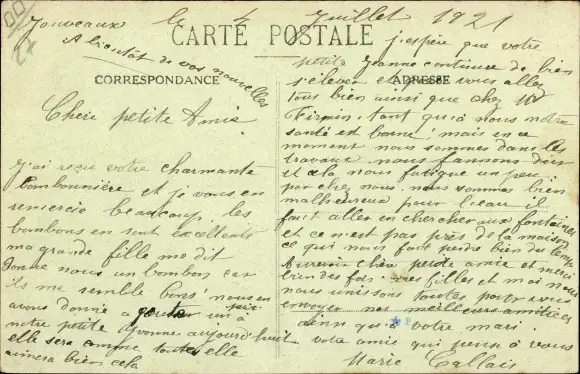 Jouveaux le 4 Juillet 1921
A bientôt de vos nouvelles
CARTE POSTALE
CORRESPONDANCE
ADRESSE
Chère petite Amie
J'ai reçu votre charmante
bombonnière et je vous en
remercie beaucoup les
bombons en sont excellents
ma grande fille me dit
donne nous un bombon car
ils me semble bons! nous en
avons donné a goûter un à
notre petite Yvonne aujourd'huit
elle sera comme toutes elle
aimera bien cela
j'espère que votre
petite Jeanne continue de bien
s'élever et que vous allez
tous bien ainsi que chez Mr
Firmin. tant qu'à nous notre
santé est bonne! mais en ce
moment nous sommes dans les
travaux nous fannons dur
et cela nous fatigue un peu
par chez nous nous sommes bien
malheureux pour l'eau il
faut aller en chercher aux fontaines
et ce n'est pas près de la maison
ce qui nous fait perdre bien du temps
chère petite amie et merci
bien des fois mes filles et moi nous
nous unissons toutes pour vous
envoyer nos meilleurs amitiées
ainsi qu'à votre mari
votre amie qui pense à vous
Marie Callais